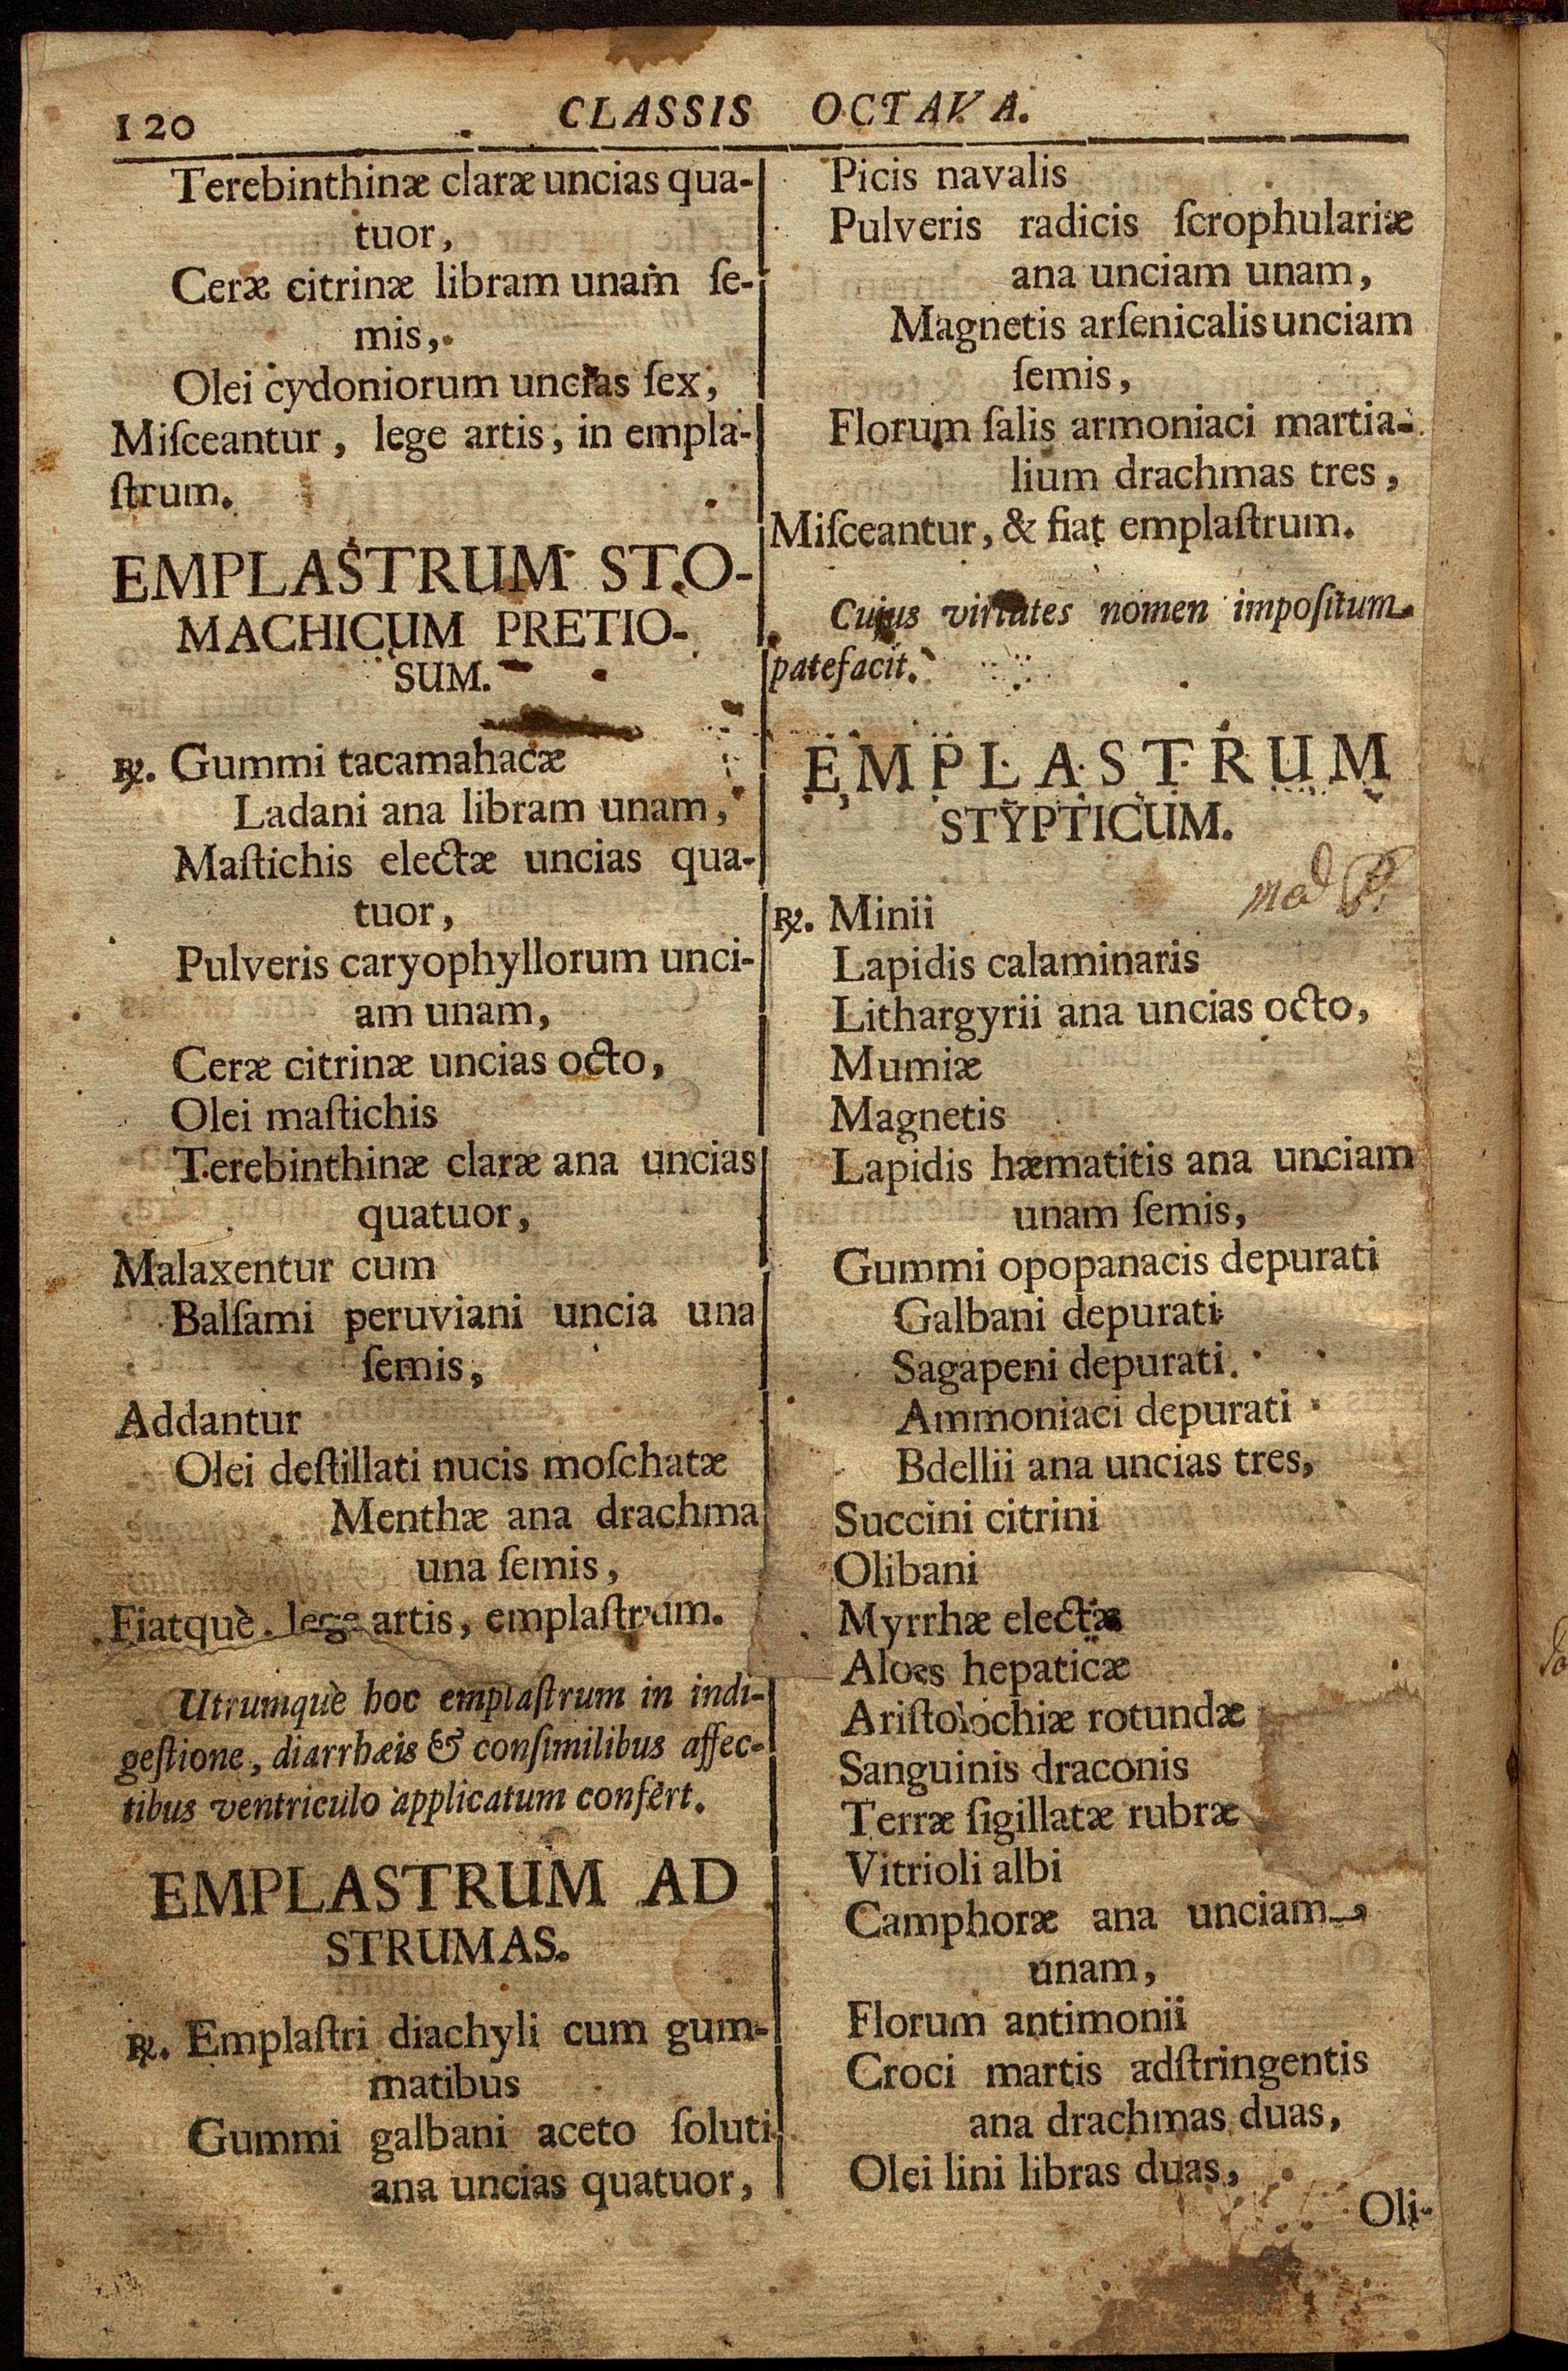 120
CLASSIS OCTAVA.
Terebinthinæ claræ uncias qua-
tuor,
Ceræ citrinæ libram unam ſe-
mis,
Olei cydoniorum uncias ſex,
Miſceantur, lege artis, in empla-
ſtrum.
EMPLASTRUM STO-
MACHICUM PRETIO-
SUM.
℞. Gummi tacamahacæ
Ladani ana libram unam,
Maſtichis electæ uncias qua-
tuor,
Pulveris caryophyllorum unci-
am unam,
Ceræ citrinæ uncias octo,
Olei maſtichis
Terebinthinæ claræ ana uncias
quatuor,
Malaxentur cum
Balſami peruviani uncia una
ſemis,
Addantur
Olei deſtillati nucis moſchatæ
Menthæ ana drachma
una ſemis,
Fiatquè, lege artis, emplaſtrum.
Utrumquè hoc emplaſtrum in indi-
geſtione, diarrhæis & conſimilibus affec-
tibus ventriculo applicatum confert.
EMPLASTRUM AD
STRUMAS.
℞. Emplaſtri diachyli cum gum-
matibus
Gummi galbani aceto ſoluti
ana uncias quatuor,
Picis navalis
Pulveris radicis ſcrophulariæ
ana unciam unam,
Magnetis arſenicalis unciam
ſemis,
Florum ſalis armoniaci martia-
lium drachmas tres,
Miſceantur, & fiat emplaſtrum.
Cujus virtutes nomen impoſitum
patefacit.
EMPLASTRUM
STYPTICUM.
℞. Minii
Lapidis calaminaris
Lithargyrii ana uncias octo,
Mumiæ
Magnetis
Lapidis hæmatitis ana unciam
unam ſemis,
Gummi opopanacis depurati
Galbani depurati
Sagapeni depurati
Ammoniaci depurati
Bdellii ana uncias tres,
Succini citrini
Olibani
Myrrhæ electæ
Aloes hepaticæ
Ariſtolochiæ rotundæ
Sanguinis draconis
Terræ ſigillatæ rubræ
Vitrioli albi
Camphoræ ana unciam
unam,
Florum antimonii
Croci martis adſtringentis
ana drachmas duas,
Olei lini libras duas,
Oli-